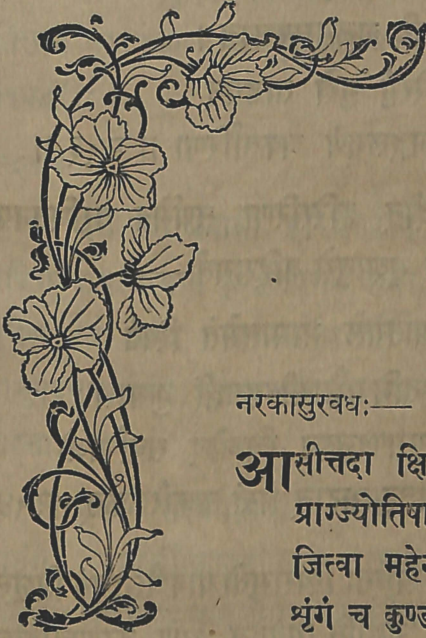 नरकासुरवधः—
आसीत्तदा क्षि
प्राग्ज्योतिषा
जित्वा महेन
शृंगं च कुण्ड